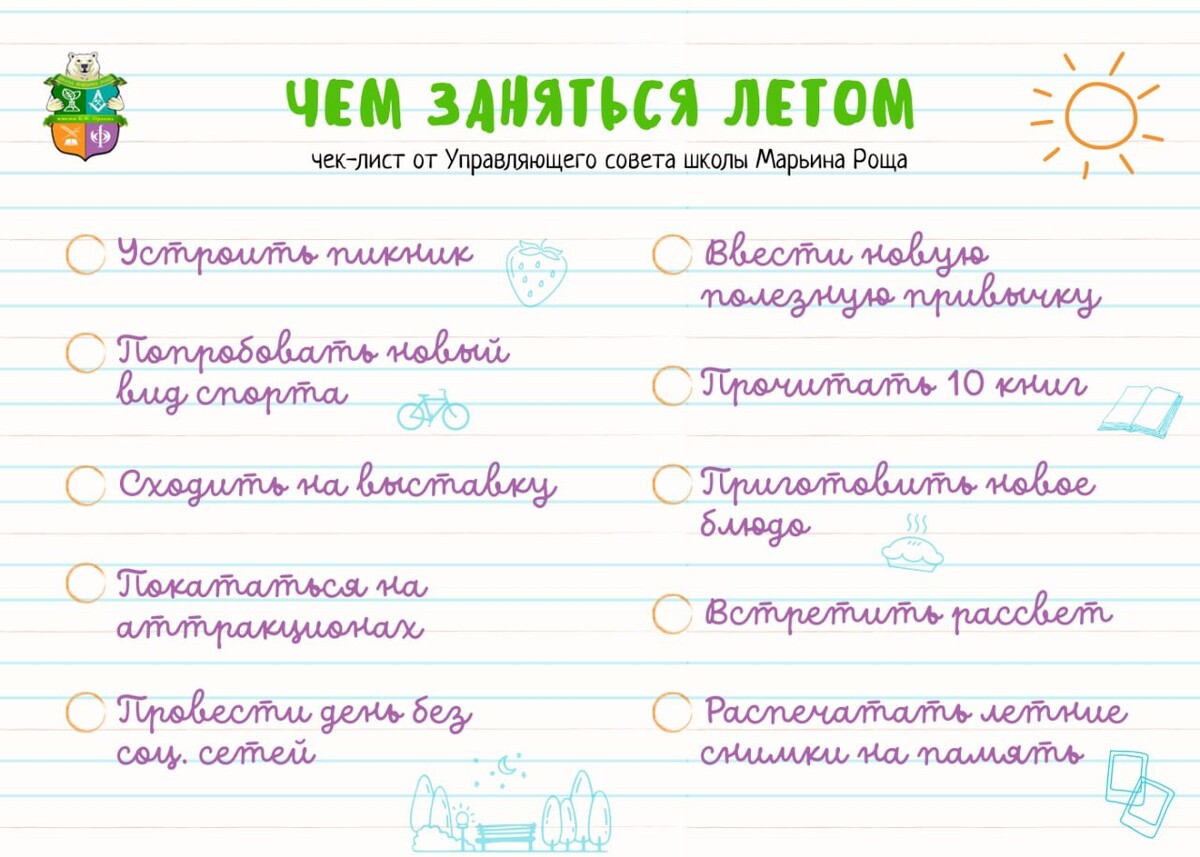 ЧЕМ ЗАНЯТЬСЯ ЛЕТОМ
чек-лист от Управляющего совета школы Марьина Роща
Устроить пикник
Попробовать новый
вид спорта
Сходить на выставку
Покататься на
аттракционах
Провести день без
соц. сетей
Ввести новую
полезную привычку
Прочитать 10 книг
Приготовить новое
блюдо
Встретить рассвет
Распечатать летние
снимки на память